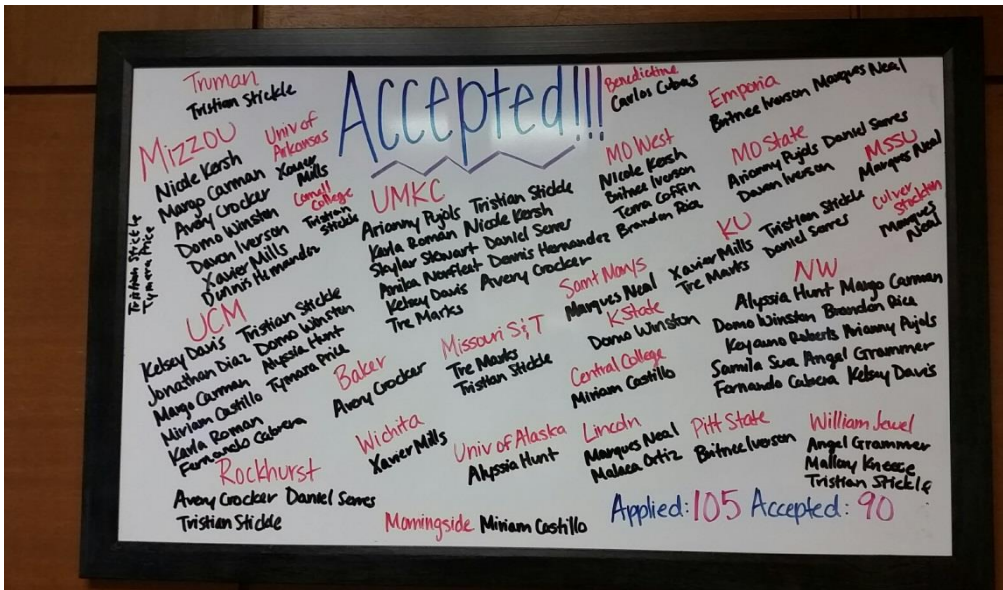 Accepted!!!
Truman
Tristian Stickle
Mizzou
Nicole Kersh
Margo Carman
Avery Crocker
Domo Winston
Davon Iverson
Xavier Mills
Dunnis Hernandez
Tristian Stickle
Tymara Price
Univ of
Arkansas
Xavier
Mills
Cornell
College
Tristian
Stickle
UMKC
Arianny Pujols Tristian Stickle
Karla Roman Nicole Kersh
Skylar Stewart Daniel Serres
Anika Norfleet Dennis Hernandez
Kelsey Davis Avery Crocker
Tre Marks
Benedictine
Carlos Cubas
Emporia
Britnee Iverson Marques Neal
MO West
Nicole Kersh
Britnee Iverson
Terra Coffin
Brandon Rice
MO State
Arianny Pujols Daniel Serres
Davon Iverson
MSSU
Marques Neal
KU
Xavier Mills Tristian Stickle
Tre Marks Daniel Serres
Culver
Stockton
Marques
Neal
UCM
Kelsey Davis Tristian Stickle
Jonathan Diaz Domo Winston
Margo Carman Alyssia Hunt
Miriam Castillo Tymara Price
Karla Roman
Fernando Cabrera
Baker
Avery Crocker
Missouri S&T
Tre Marks
Tristian Stickle
Saint Mary's
Marques Neal
K State
Domo Winston
Central College
Miriam Castillo
NW
Alyssia Hunt Margo Carman
Domo Winston Brandon Rice
Keyauno Roberts Arianny Pujols
Samila Sua Angel Grammer
Fernando Cabrera Kelsey Davis
Rockhurst
Avery Crocker Daniel Serres
Tristian Stickle
Wichita
Xavier Mills
Univ of Alaska
Alyssia Hunt
Lincoln
Marques Neal
Malaca Ortiz
Pitt State
Britnee Iverson
William Jewel
Angel Grammer
Mallory Kneece
Tristian Stickle
Morningside Miriam Castillo
Applied: 105 Accepted: 90